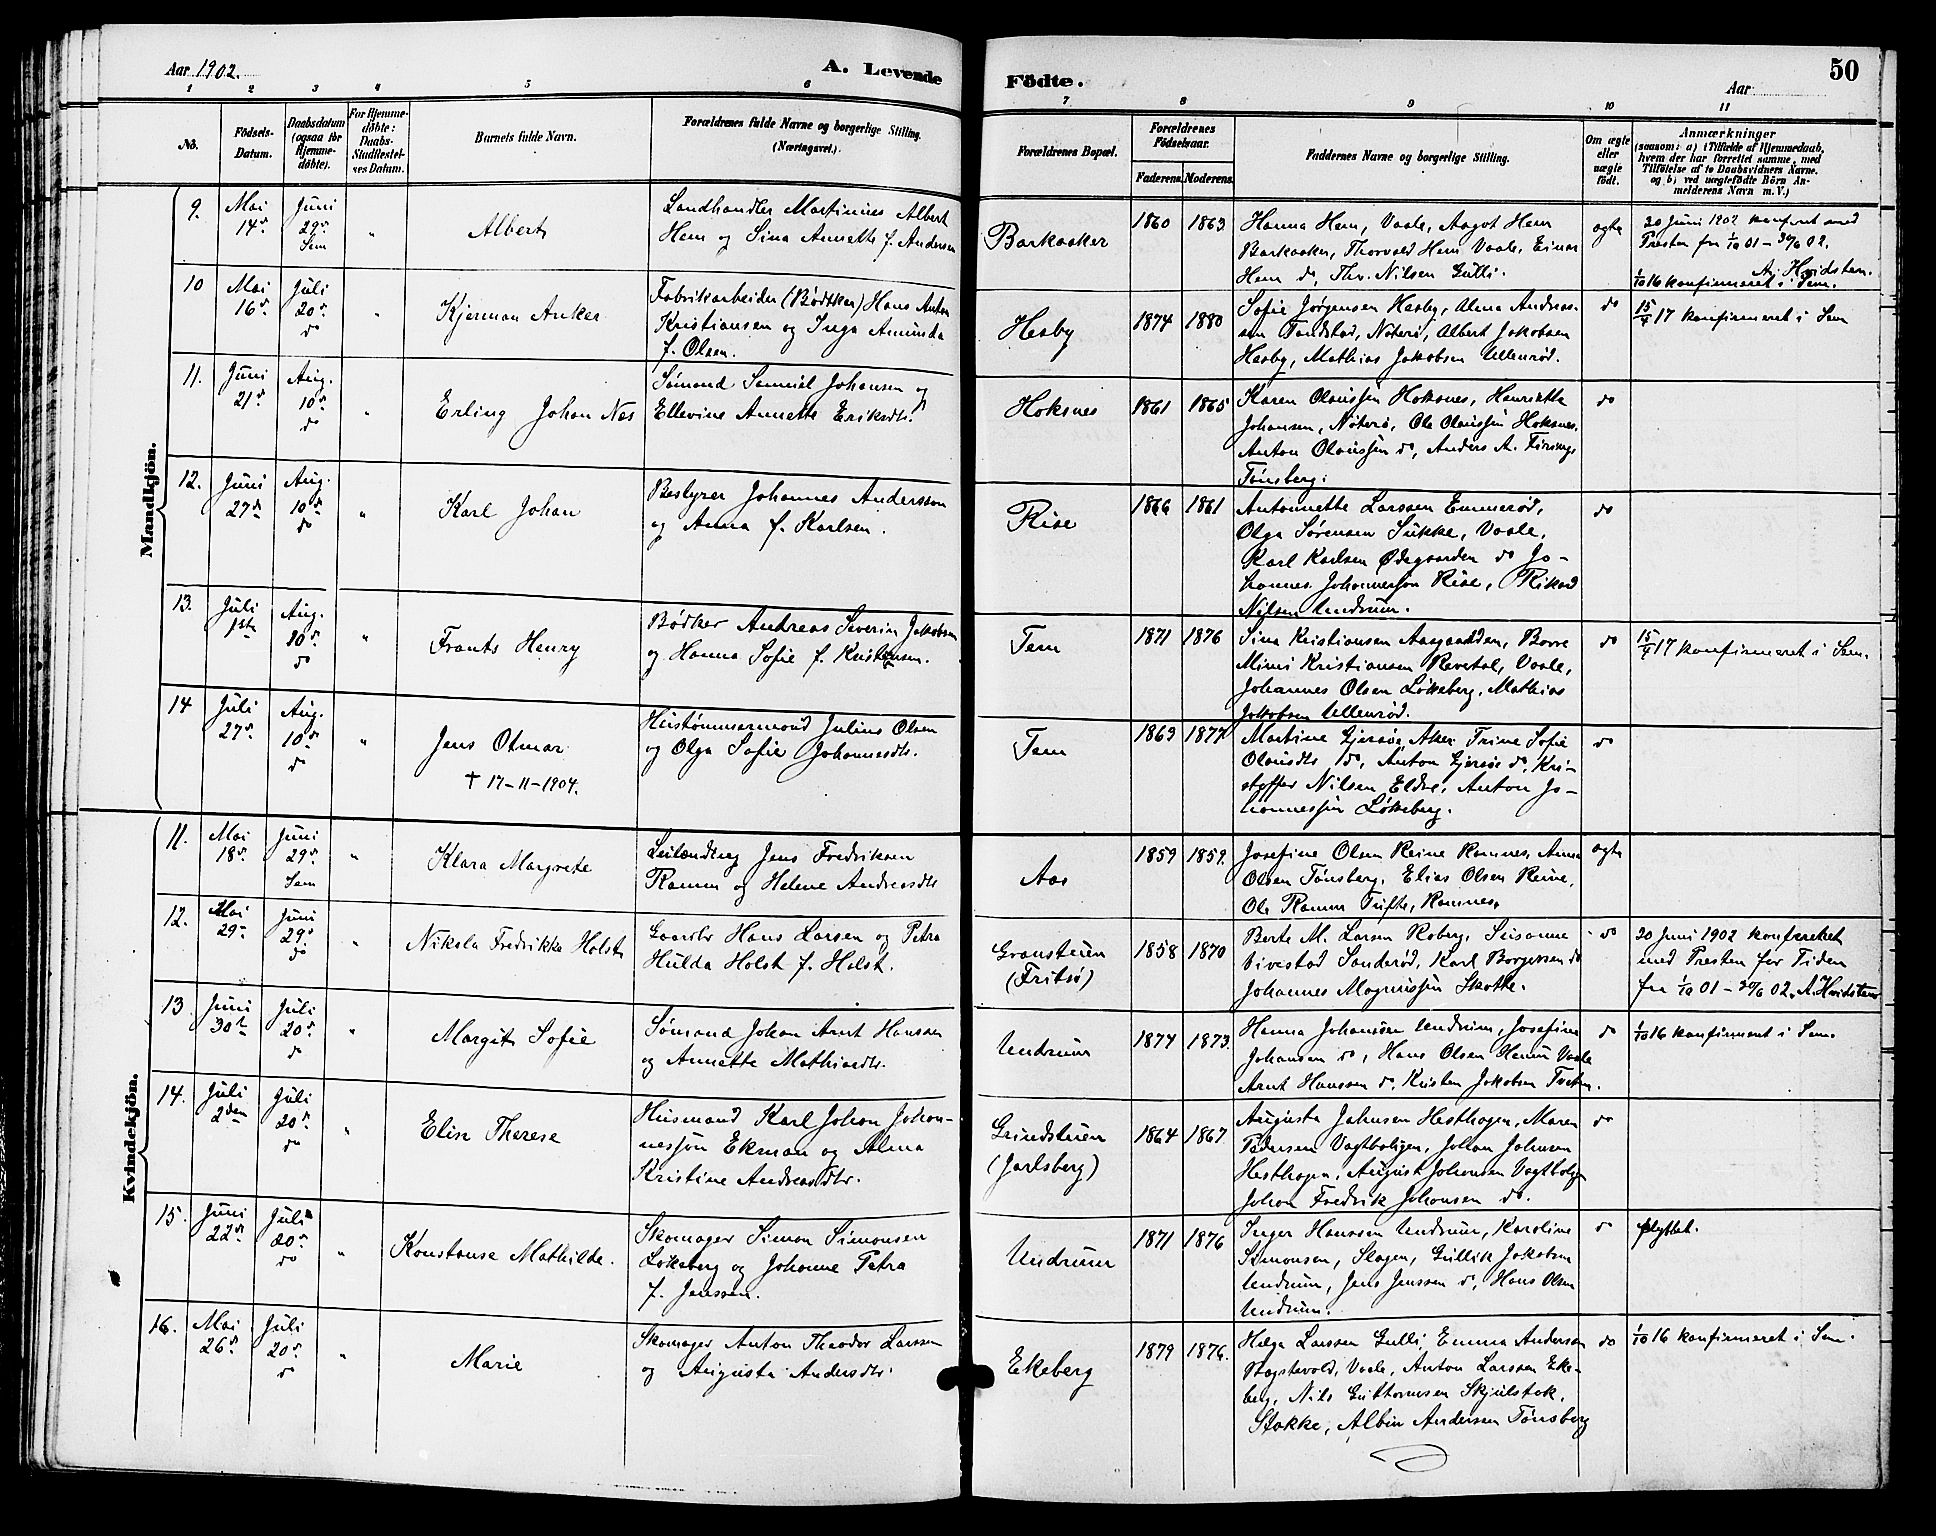 Aar 1902.
A. Levende
Födte.
50
Aar
1 2 3 4 5 6 7 8 9 10 11
No.
Födsels-Datum.
Daabsdatum (ogsaa för Hjemmedöbte).
For Hjemmedöbte: Daabs-Stadfæstelses Datum.
Barnets fulde Navn.
Forældrenes fulde Navne og borgerlige Stilling. (Næringsvei.)
Forældrenes Bopæl.
Forældrenes Födselsaar.
Faderens. Moderens.
Faddernes Navne og borgerlige Stilling.
Om ægte eller uægte födt.
Anmærkninger
(saasom: a) i Tilfælde af Hjemmedaab, hvem der har forrettet samme, med Tilföielse af to Daabsvidners Navne. og b) ved uægtefödte Börn Anmelderens Navn m. V.)
Mandkjön.
9.
Mai 14de
Juni 29de Sem
"
Albert
Landhandler Martinius Albert
Hem og Sina Annette f. Andersen
Barkaaker
1860 1863
Hanna Hem, Vaale, Aagot Hem
Barkaaker, Thorvald Hem Vaale, Einar
Hem do, Thv. Nilsen Gulli.
ægte
20 Juni 1902 konferet med
Presten fra 1/10 01 - 20/6 02.
A. Hvidsten.
1/10 16 konfirmeret i Sem.
10
Mai 16de
Juli 20de do
"
Kjerman Anker
Fabrikarbeider (Bødtker) Hans Anton
Kristiansen og Inga Amunda
f. Olsen.
Hesby
1874 1880
Sofie Jørgensen Hesby, Alma Andreas-
sen Tandstad, Nøterø, Albert Jakobsen
Hesby, Mathias Jakobsen Ullenrød.
do
15/4 17 konfirmeret i Sem
11.
Juni 21de
Aug. 10de do
"
Erling Johan Nas
Sømand Samuel Johansen og
Ellevine Annette Eriksdtr.
Hoksnes
1861 1865
Karen Olaussen Hoksnes, Henriette
Johansen, Nøterø, Ole Olaussen Hoksnes,
Anton Olaussen do, Anders A.
Tønsberg.
do
12.
Juni 27de
Aug. 10de do
"
Karl Johan
Bestyrer Johannes Andersson
og Anna f. Karlsen.
Rise
1866 1861
Antonette Larssen Emmerød,
Olga Sørensen Sukke, Vaale,
Karl Karlsen Ødegaarden do Jo-
hannes Johannessen Rise, Rikard
Nilsen Undrum.
do
13.
Juli 1ste
Aug. 10de do
"
Frants Henry
Bødker Andreas Severin Jakobsen
og Hanna Sofie f. Kristensen.
Tem
1871 1876
Sina Kristiansen Aasgaadden, Borre
Mimi Kristiansen Revetal, Vaale,
Johannes Olsen Løkeberg, Mathias
Jakobsen Ullenrød.
do
15/4 17 konfirmeret i Sem.
14
Juli 27de
Aug. 10de do
"
Jens Otmar
† 17-11-1904.
Hustømmermand Julius Olsen
og Olga Sofie Johannesdtr.
Tem
1863 1877
Martine Gjersøe, Aker Trine Sofie
Olausdtr do, Anton Gjersøe do, Kri-
stoffer Nilsen Eldre, Anton Jo-
hannessen Løkeberg.
do
Kvindekjön.
11.
Mai 18de
Juni 29de Sem
"
Klara Margrete
Leilænding Jens Fredriksen
Ramm og Helene Andreasdtr
Aas
1859 1859.
Josefine Olsen Reine Ramnes, Anna
Olsen Tønsberg, Elias Olsen Reine,
Ole Ramm Tufte, Ramnes.
ægte
12.
Mai 29de
Juni 29de do
"
Nikola Fredrikke Holst
Gaardbr Hans Larsen og Petra
Hulda Holst f. Holst.
Gransteien
(Fritsø)
1858 1870
Berte M. Larsen Roberg, Susanne
Vivestad Sanderød, Karl Borgersen do
Johannes Magnussen Skotte.
do
20 Juni 1902 konfereret
med Presten for Tiden
fra 1/10 01 - 20/6 02. A. Hvidsten
13.
Juni 30te
Juli 20de do
"
Margit Sofie
Sømand Johan Arnt Hanssen
og Annette Mathiasdtr.
Undrum
1874 1873.
Hanna Johansen Undrum, Josefine
Johansen do, Hans Olsen Vaale
Arnt Hanssen do, Kristen Jakobsen
do
1/10 16 konfirmeret i Sem.
14.
Juli 2den
Juli 20de do
"
Elise Therese
Husmand Karl Johan Johan-
nessen Ekman og Alma
Kristine Andreasdtr.
Grindsteien
(Jarlsberg)
1864 1867.
Augusta Jahnsen Hesthagen, Maren
Pedersen Vagtboligen, Johan Jahnsen
Hesthagen, August Johansen Vagtbolige
Johan Fredrik Johansen do.
do
15.
Juni 22de
Juli 20de do
"
Konstanse Mathilde.
Skomager Simon Simonsen
Løkeberg og Johanne Petra
f. Jenssen.
Undrum
1871 1876
Inger Hanssen Undrum, Karoline
Simonsen, Slagen, Gullik Jakobsen
Undrum, Jens Jenssen do, Hans Olsen
Undrum.
do
flyttet.
16.
Mai 26de
Juli 20de do
"
Marie
Skomager Anton Theodor Larssen
og Augusta Andersdtr.
Ekeberg
1879 1876.
Helga Larssen Gulli, Emma Andersen
Vaale, Anton Larssen Eke-
berg, Nils Guttormsen Skjelstok,
Stokke, Albin Andersen Tønsberg
do
1/10 16 konfirmeret i Sem.